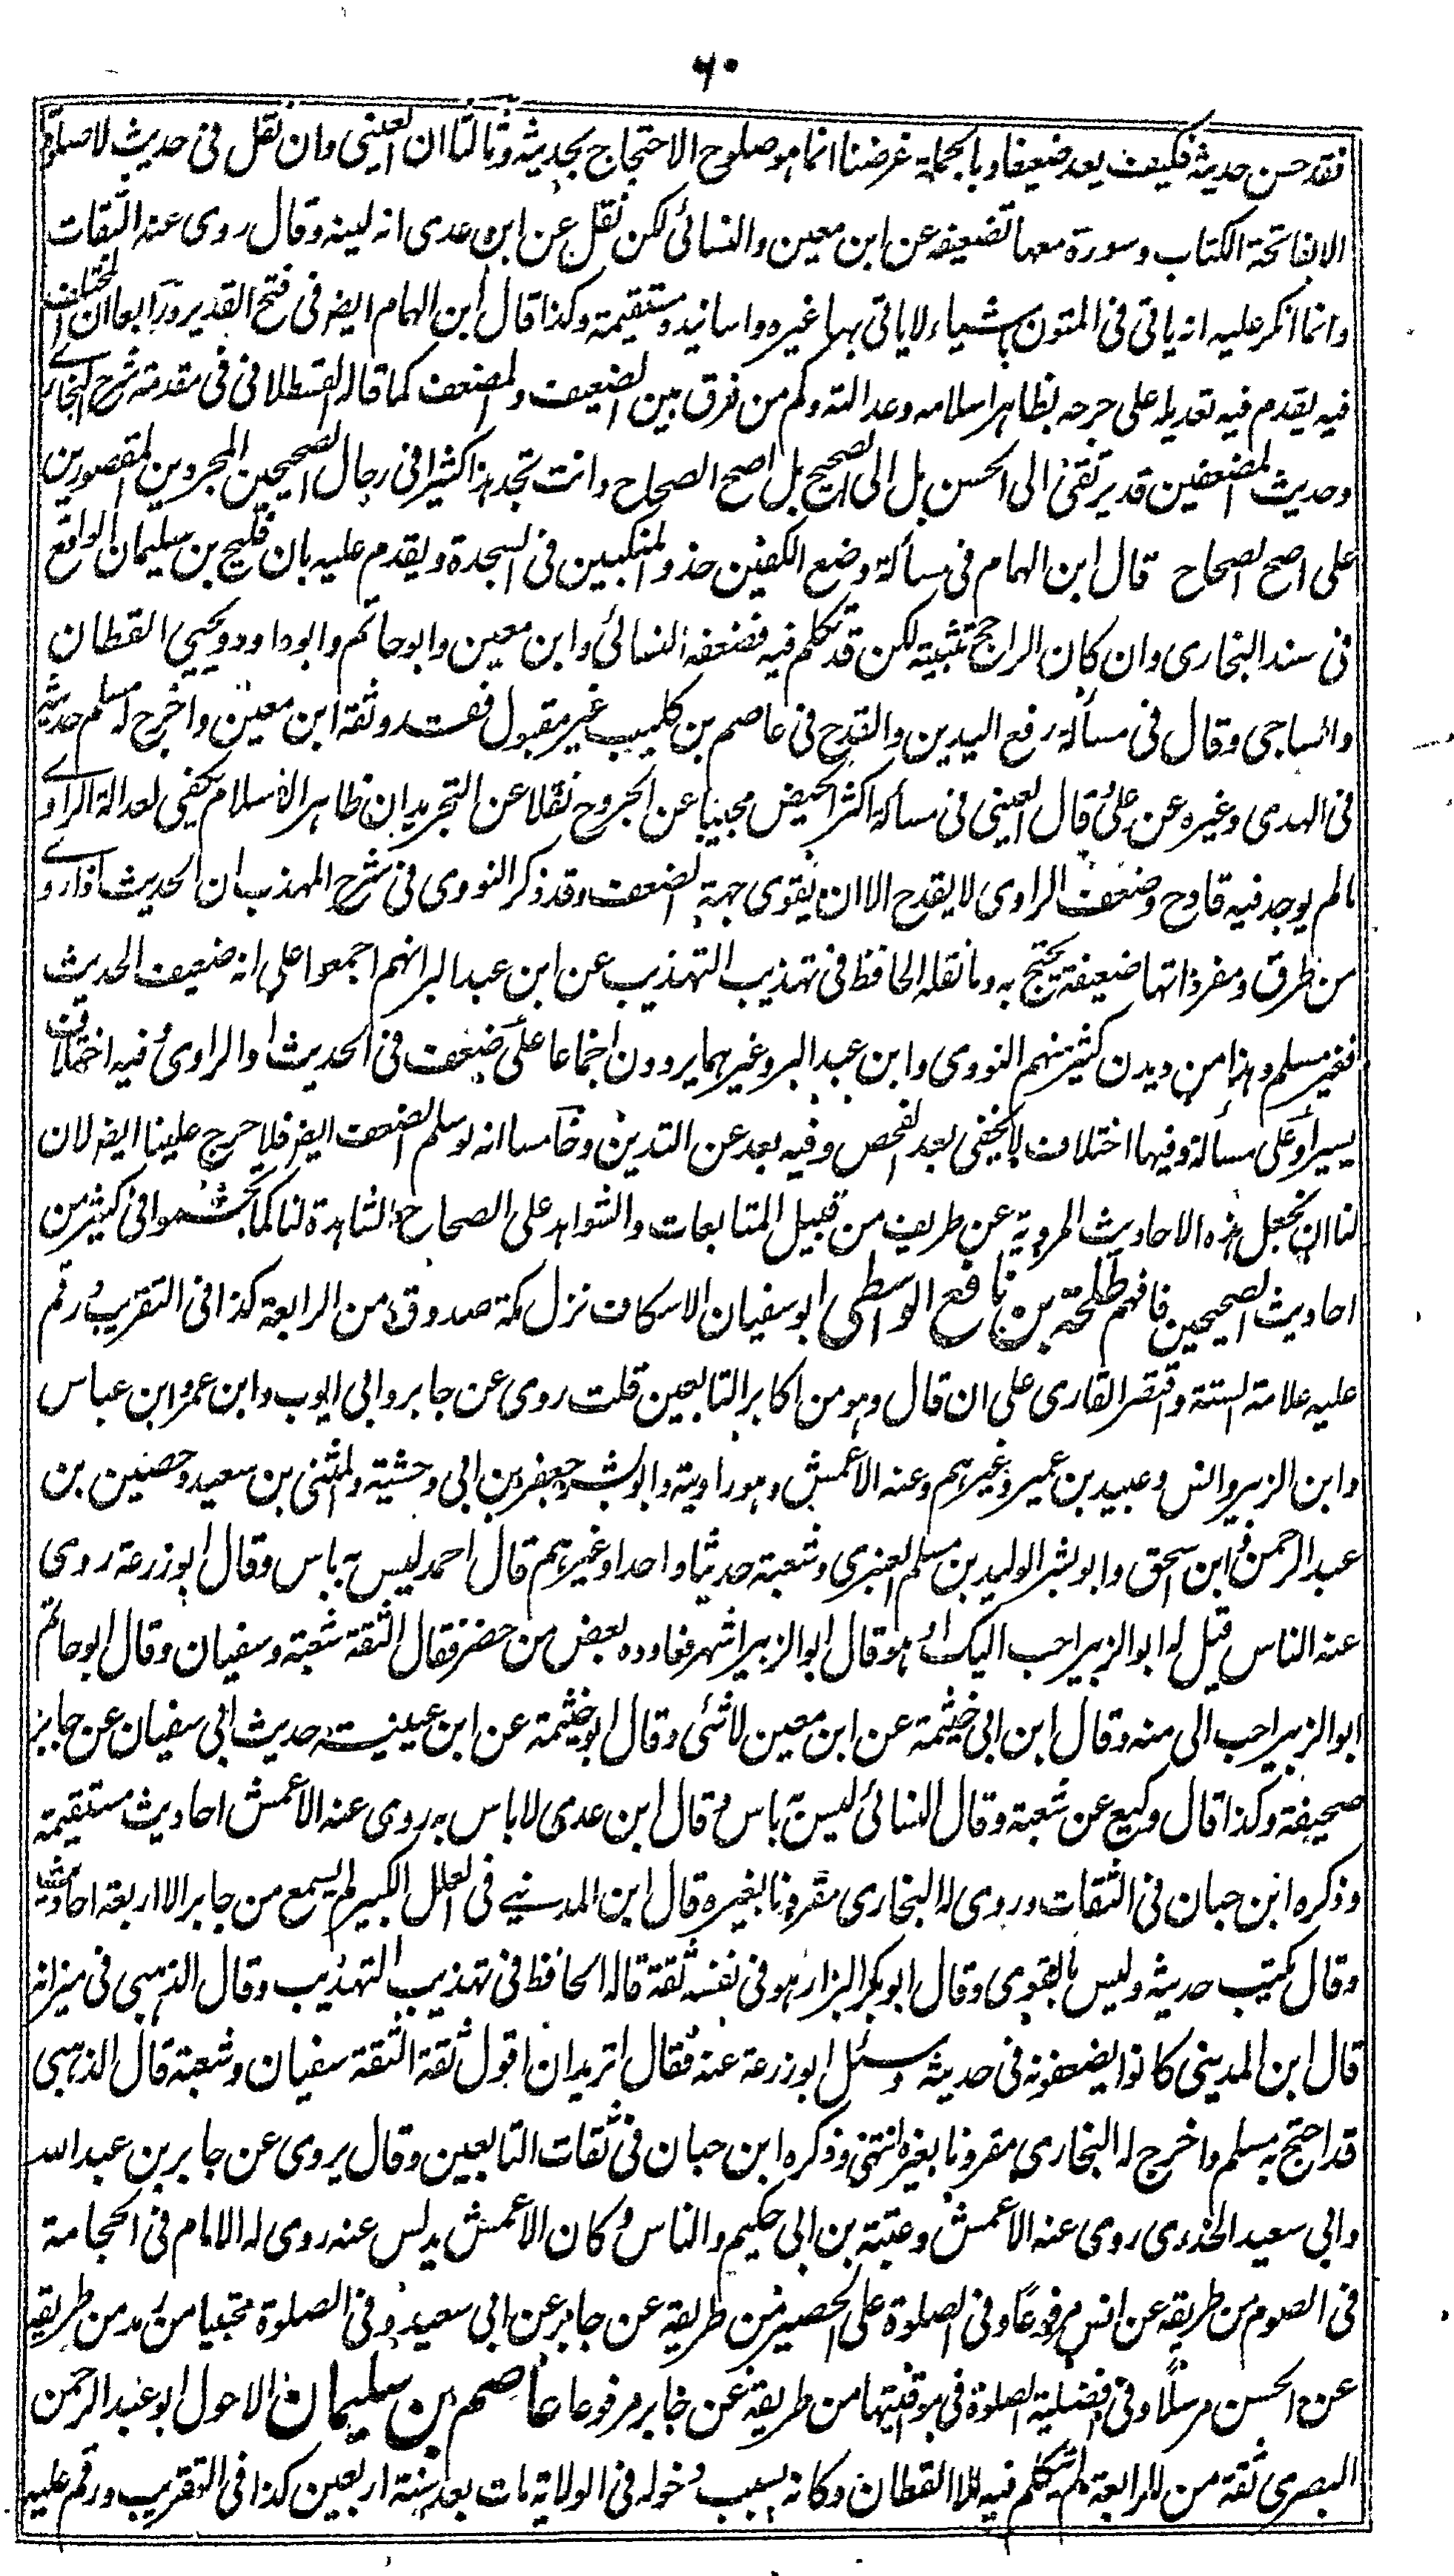 ٦٠
فقد حسن حديثه فكيف يعد ضعيفا وبالجملة غرضنا انما هو صلوح الاحتجاج بحديثه وثالثا ان العيني وان نقل في حديث لا صلوة
الا بفاتحة الكتاب وسورة معها تضعيفه عن ابن معين والنسائي لكن نقل عن ابن عدي انه لينه وقال روى عنه الثقات
وانما انكر عليه انه ياتي في المتون باشياء لا ياتي بها غيره واسانيده مستقيمة وكذا قال ابن الهمام ايضر في فتح القدير ورابعا ان المختلف
فيه يقدم فيه تعديله على جرحه بظاهر اسلامه وعدالته وكم من فرق بين الضعيف والمضعف كما قاله القسطلاني في مقدمة شرح البخاري
وحديث المضعفين قد يرتقى الى الحسن بل الى الصحيح بل اصح الصحاح وانت تجد هذا كثيرا في رجال الصحيحين المجروحين المقصورين
على اصح الصحاح قال ابن الهمام في مسألة وضع الكفين حذو المنكبين في السجدة ويقدم عليه بان فليح بن سليمان الواقع
في سند البخاري وان كان الراجح تثبيته لكن قد تكلم فيه فضعفه النسائي وابن معين وابو حاتم وابو داود ويحيي القطان
والساجي وقال في مسألة رفع اليدين والقدح في عاصم بن كليب غير مقبول فقد وثقه ابن معين واخرج له مسلم حديثه
في الهدى وغيره عن علي قال العيني في مسألة اكثر الحيض مجيبا عن الجروح نقلا عن التجريد ان ظاهر الاسلام يكفي لعدالة الراوي
مالم يوجد فيه قادح وضعف الراوي لا يقدح الا ان يقوى جهة الضعف وقد ذكر النووي في شرح المهذب ان الحديث اذا روي
من طرق ومفرداتها ضعيفة يحتج به وما نقله الحافظ في تهذيب التهذيب عن ابن عبد البر انهم اجمعوا على انه ضعيف الحديث
فغير مسلم وهذا من ديدن كثير منهم النووي وابن عبد البر وغيرهما يروون اجماعا على ضعف في الحديث او الراوي وفيه اختلاف
يسير او على مسألة وفيها اختلاف لا يخفى بعد الفحص وفيه بعد عن التدين وخامسا انه لو سلم الضعف ايضر فلا حرج علينا ايضر لان
لنا ان نجعل هذه الاحاديث المروية عن طريف من قبيل المتابعات والشواهد على الصحاح الشاهدة لنا كما تجشموا في كثير من
احاديث الصحيحين فافهم طلحة بن نافع الواسطي ابو سفيان الاسكاف نزل مكة صدوق من الرابعة كذا في التقريب ورقم
عليه علامة الستة واقتصر القاري على ان قال وهو من اكابر التابعين قلت روى عن جابر وابي ايوب وابن عمر وابن عباس
وابن الزبير وانس وعبيد بن عمير وغيرهم وعنه الاعمش وهو راويته وابو بشر جعفر بن ابي وحشية والمثنى بن سعيد وحصين بن
عبد الرحمن وابن اسحق وابو بشر الوليد بن مسلم العنبري وشعبة حديثا واحدا وغيرهم قال احمد ليس به باس وقال ابو زرعة روى
عنه الناس قيل له ابو الزبير احب اليك او هو قال ابو الزبير اشهر فعاوده بعض من حضر فقال الثقة شعبة وسفيان وقال ابو حاتم
ابو الزبير احب الى منه وقال ابن ابي خيثمة عن ابن معين لا شئ وقال ابو خيثمة عن ابن عيينة حديث ابي سفيان عن جابر
صحيفة وكذا قال وكيع عن شعبة وقال النسائي ليس به باس وقال ابن عدي لا باس به روى عنه الاعمش احاديث مستقيمة
وذكره ابن حبان في الثقات وروى له البخاري مقرونا بغيره قال ابن المديني في العلل الكبير لم يسمع من جابر الا اربعة احاديث
وقال يكتب حديثه وليس بالقوى وقال ابو بكر البزار هو في نفسه ثقة قاله الحافظ في تهذيب التهذيب وقال الذهبي في ميزانه
قال ابن المديني كانوا يضعفونه في حديثه وسئل ابو زرعة عنه فقال اتريد ان اقول ثقة الثقة سفيان وشعبة قال الذهبي
قد احتج به مسلم واخرج له البخاري مقرونا بغيره انتهى وذكره ابن حبان في ثقات التابعين وقال يروى عن جابر بن عبد الله
وابي سعيد الخدري روى عنه الاعمش وعتبة بن ابي حكيم والناس وكان الاعمش يدلس عنه روى له الامام في الحجامة
في الصوم من طريقه عن انس مرفوعا وفي الصلوة على الحصير من طريقه عن جابر عن ابي سعيد وفي الصلوة محتبيا من رمد من طريقه
عن الحسن مرسلا وفي فضيلة الصلوة في مواقيتها من طريقه عن جابر مرفوعا عاصم بن سليمان الاحول ابو عبد الرحمن
البصري ثقة من الرابعة لم يتكلم فيه الا القطان وكانه بسبب دخوله في الولاية مات بعد سنة اربعين كذا في التقريب ورقم عليه